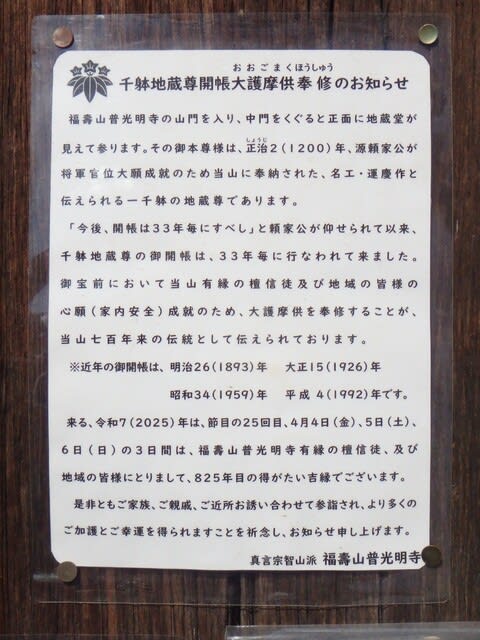 おおごまくほうしゅう
千躰地蔵尊開帳大護摩供奉修のお知らせ
福壽山普光明寺の山門を入り、中門をくぐると正面に地蔵堂が
しょうじ
見えて参ります。その御本尊様は、正治2(1200)年、源頼家公が
将軍官位大願成就のため当山に奉納された、名工・運慶作と
伝えられる一千躰の地蔵尊であります。
「今後、開帳は33年毎にすべし」と頼家公が仰せられて以来、
千躰地蔵尊の御開帳は、33年毎に行なわれて来ました。
御宝前において当山有縁の檀信徒及び地域の皆様の
心願(家内安全)成就のため、大護摩供を奉修することが、
当山七百年来の伝統として伝えられております。
※近年の御開帳は、明治26(1893)年 大正15(1926)年
昭和34(1959)年 平成4(1992)年です。
来る、令和7(2025)年は、節目の25回目、4月4日(金)、5日(土)、
6日(日)の3日間は、福壽山普光明寺有縁の檀信徒、及び
地域の皆様にとりまして、825年目の得がたい吉縁でございます。
是非ともご家族、ご親戚、ご近所お誘い合わせて参詣され、より多くの
ご加護とご幸運を得られますことを祈念し、お知らせ申し上げます。
真言宗智山派 福壽山普光明寺